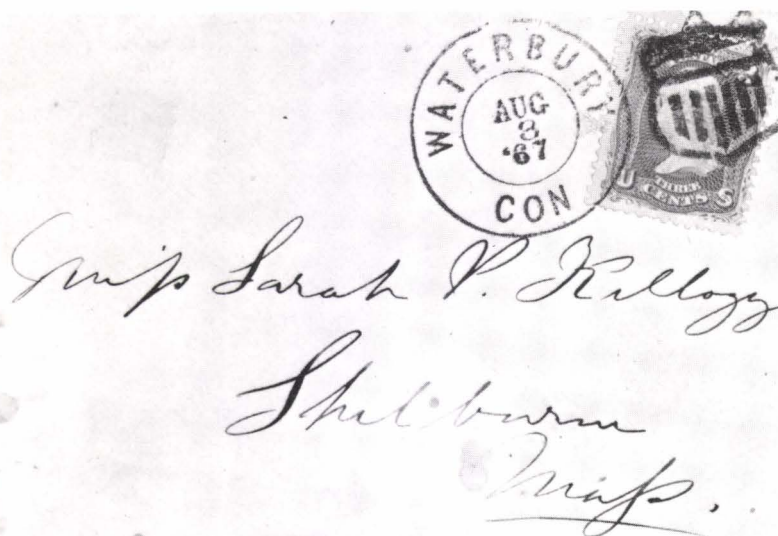 WATERBURY
AUG
8
'67
CON
THREE
U CENTS S
Miss Sarah P. Kellogg
Shelburne
Mass.